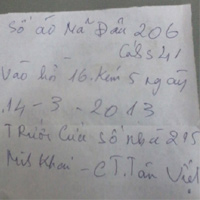 Số áo Mã Đầu 206
Ca S3 41
Vào hồi 16. Kém 5 ngày
14 - 3 - 2013
Trước cửa số nhà 215
Minh Khai - CT. Tân Việt